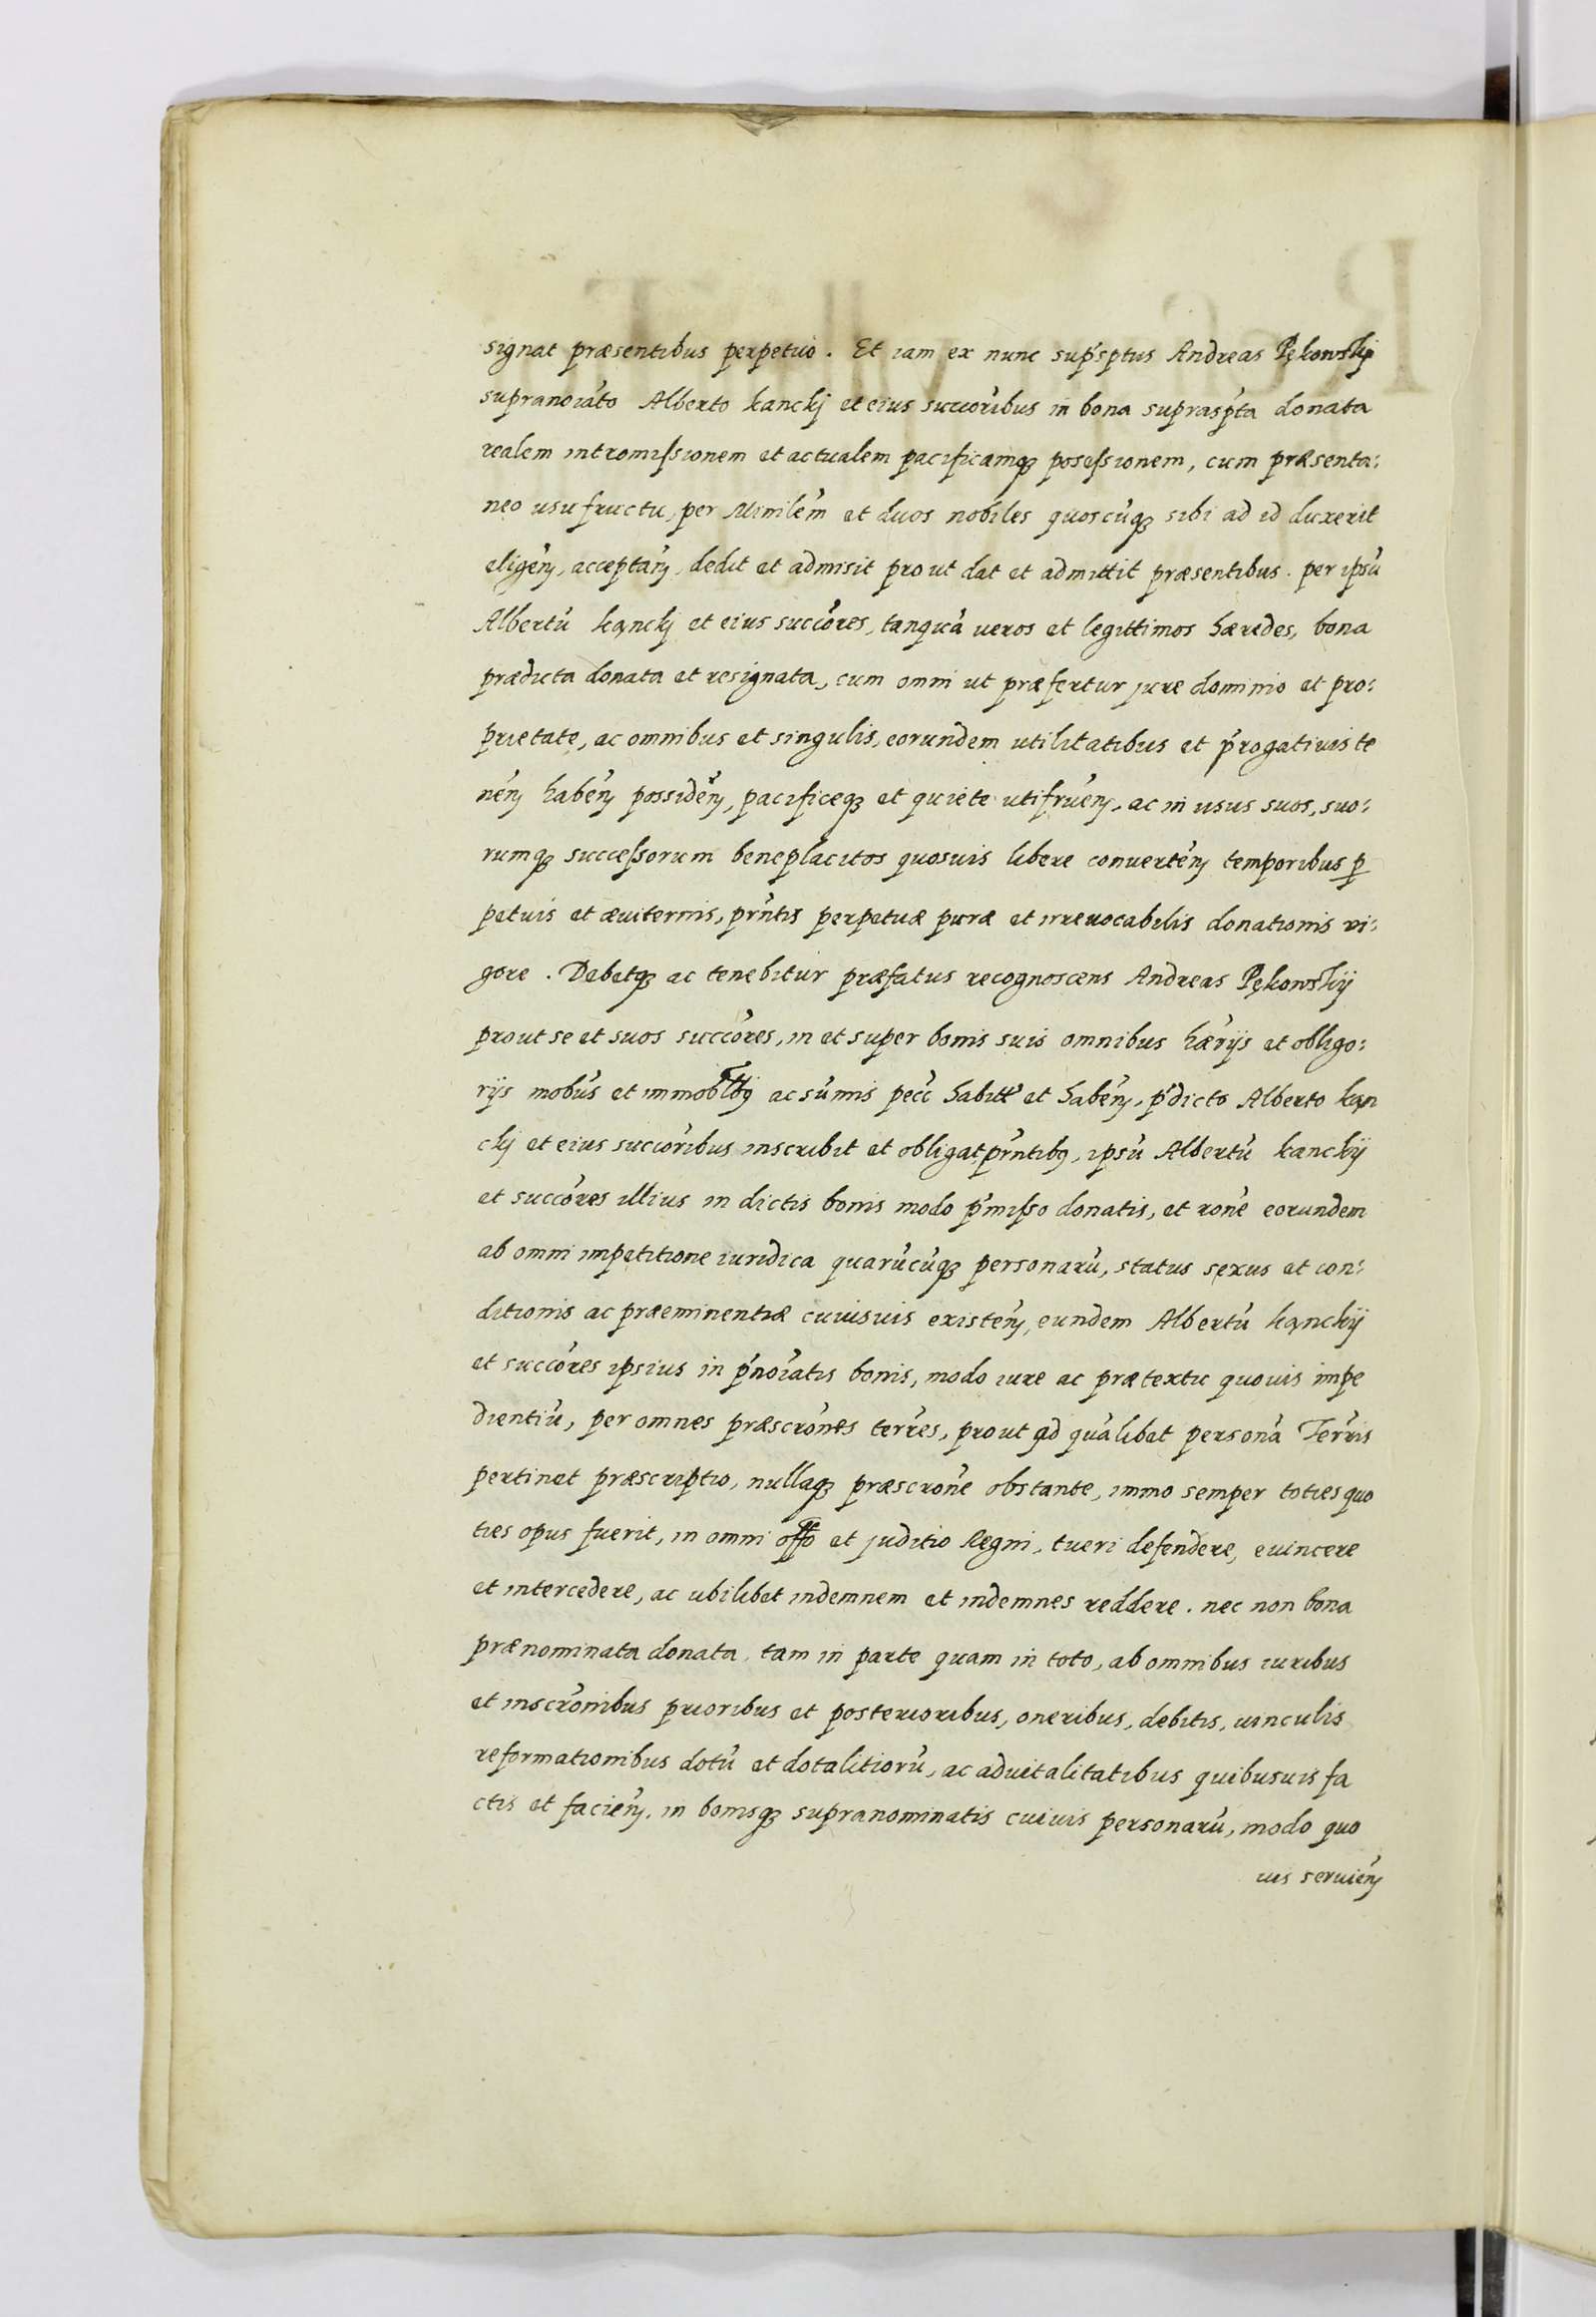 signat præsentibus perpetuo. Et iam ex nunc sup'sptus Andreas Pękowskij
supranoi̛ato Alberto kanckj et eius succơribus in bona supraspt̛a donata
realem intromissionem et actualem pacificamq₃ posessionem, cum præsenta:
neo usufructu, per Minile̛m et duos nobiles quoscưq₃ sibi ad id duxerit
elige̛n̛, accepta̛n̛, dedit et admisit prout dat et admittit præsentibus. per ipsư
Albertư kanckj et eius succơres, tanqua̛ ueros et legittimos hæredes, bona
prædicta donata et resignata, cum omni ut præfertur jure dominio et pro:
prietate, ac omnibus et singulis, eorundem utilitatibus et p̛rogatiuis te
ne̛n̛ habe̛n̛ posside̛n̛, pacificeq₃ et quiete utifrue̛n̛, ac in usus suos, suo:
rumq₃ successorum beneplacitos quosuis libere conuerte̛n̛ temporibus ꝑ
petuis et æuiternis, prn̛tis perpetuæ puræ et irreuocabilis donationis vi:
gore. Debetq₃ ac tenebitur præfatus recognoscens Andreas Pękowskij
prout se et suos succơres, in et super bonis suis omnibus hær̛ijs et obligo:
rijs mobưs et immobl̛bꝰ ac sưmis pecc̛ habitt̛ et habe̛n̛, p̛dicto Alberto kan
ckj et eius succơribus inscribit et obligat prn̛tibꝰ, ipsư Albertư kanckij
et succơres illius in dictis bonis modo p̛misso donatis, et ron̛e eorundem
ab omni impetitione iuridica quarưcưq₃ personarư, status sexus et con:
ditionis ac præeminentiæ cuiusuis existe̛n̛, eundem Albertư kanckij
et succơres ipsius in p̛noi̛atis bonis, modo iure ac prætextu quouis impe
dientiư, per omnes præscrơnes terr̛es, prout ad qua̛libet persona̛ Terr̛is
pertinet præscriptio, nullaq₃ præscron̛e obstante, immo semper toties quo
ties opus fuerit, in omni offơ et juditio Regni, tueri defendere, euincere
et intercedere, ac ubilibet indemnem et indemnes reddere. nec non bona
prænominata donata, tam in parte quam in toto, ab omnibus iuribus
et inscrơnibus prioribus et posterioribus, oneribus, debitis, uinculis
reformationibus dotư et dotalitiorư, ac aduitalitatibus quibusuis fa
ctis et facie̛n̛. in bonisq₃ supranominatis cuiuis personarư, modo quo
uis seruie̛n̛